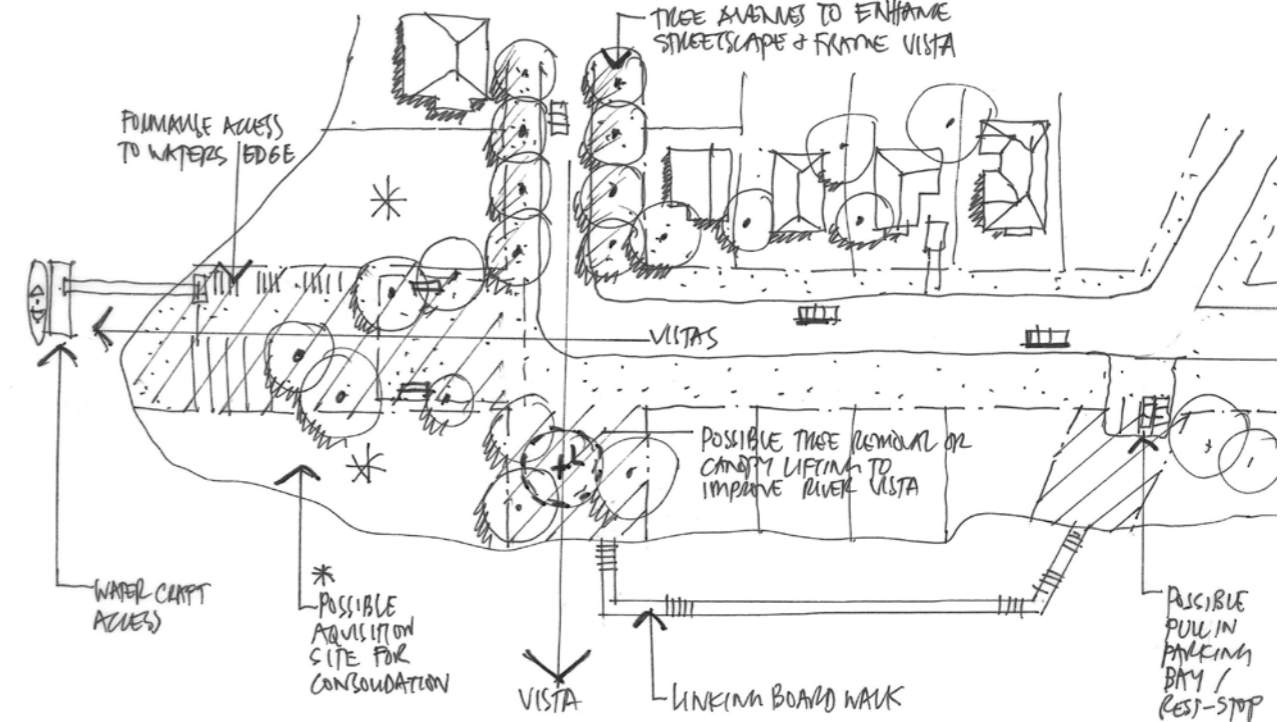 TREE AVENUES TO ENHANCE
STREETSCAPE & FRAME VISTA
FORMALISE ACCESS
TO WATERS EDGE
VISTAS
POSSIBLE TREE REMOVAL OR
CANOPY LIFTING TO
IMPROVE RIVER VISTA
WATER CRAFT
ACCESS
*
POSSIBLE
AQUISITION
SITE FOR
CONSOLIDATION
VISTA
LINKING BOARD WALK
POSSIBLE
PULL IN
PARKING
BAY /
REST-STOP